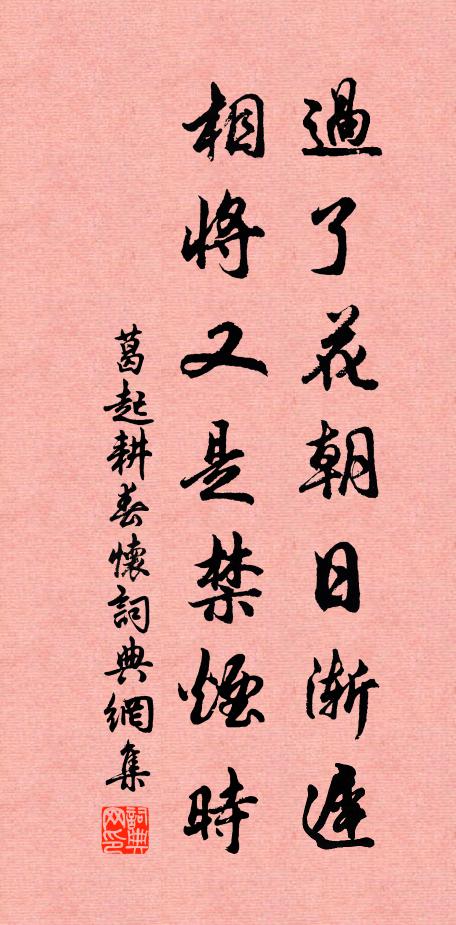 過了花朝日漸遲
相將又是禁煙時
葛起耕春懷詞典網集
詞典网印